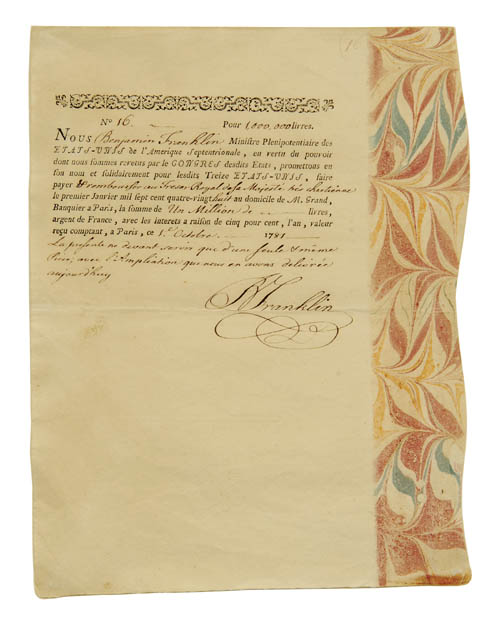 Nº 16. Pour 1,000,000 livres.
NOUS Benjamin Franklin Ministre Plenipotentiaire des
ETATS-UNIS de l'Amerique Septentrionale, en vertu du pouvoir
dont nous sommes revetus par le CONGRES desdits Etats, promettons en
son nom et solidairement pour lesdits Treize ETATS-UNIS, faire
payer & rembourser au Tresor Royal de sa Majesté très chretienne
le premier Janvier mil sept cent quatre-vingt huit au domicile de M. Grand,
Banquier a Paris, la somme de Un Million de livres,
argent de France, avec les interets a raison de cinq pour cent, l'an, valeur
reçu comptant, a Paris, ce 1er Octobre 1781
La presente ne devant servir que d'une seule & même
Piece avec l'Ampliation que nous en avons delivrée
aujourdhuy
B Franklin